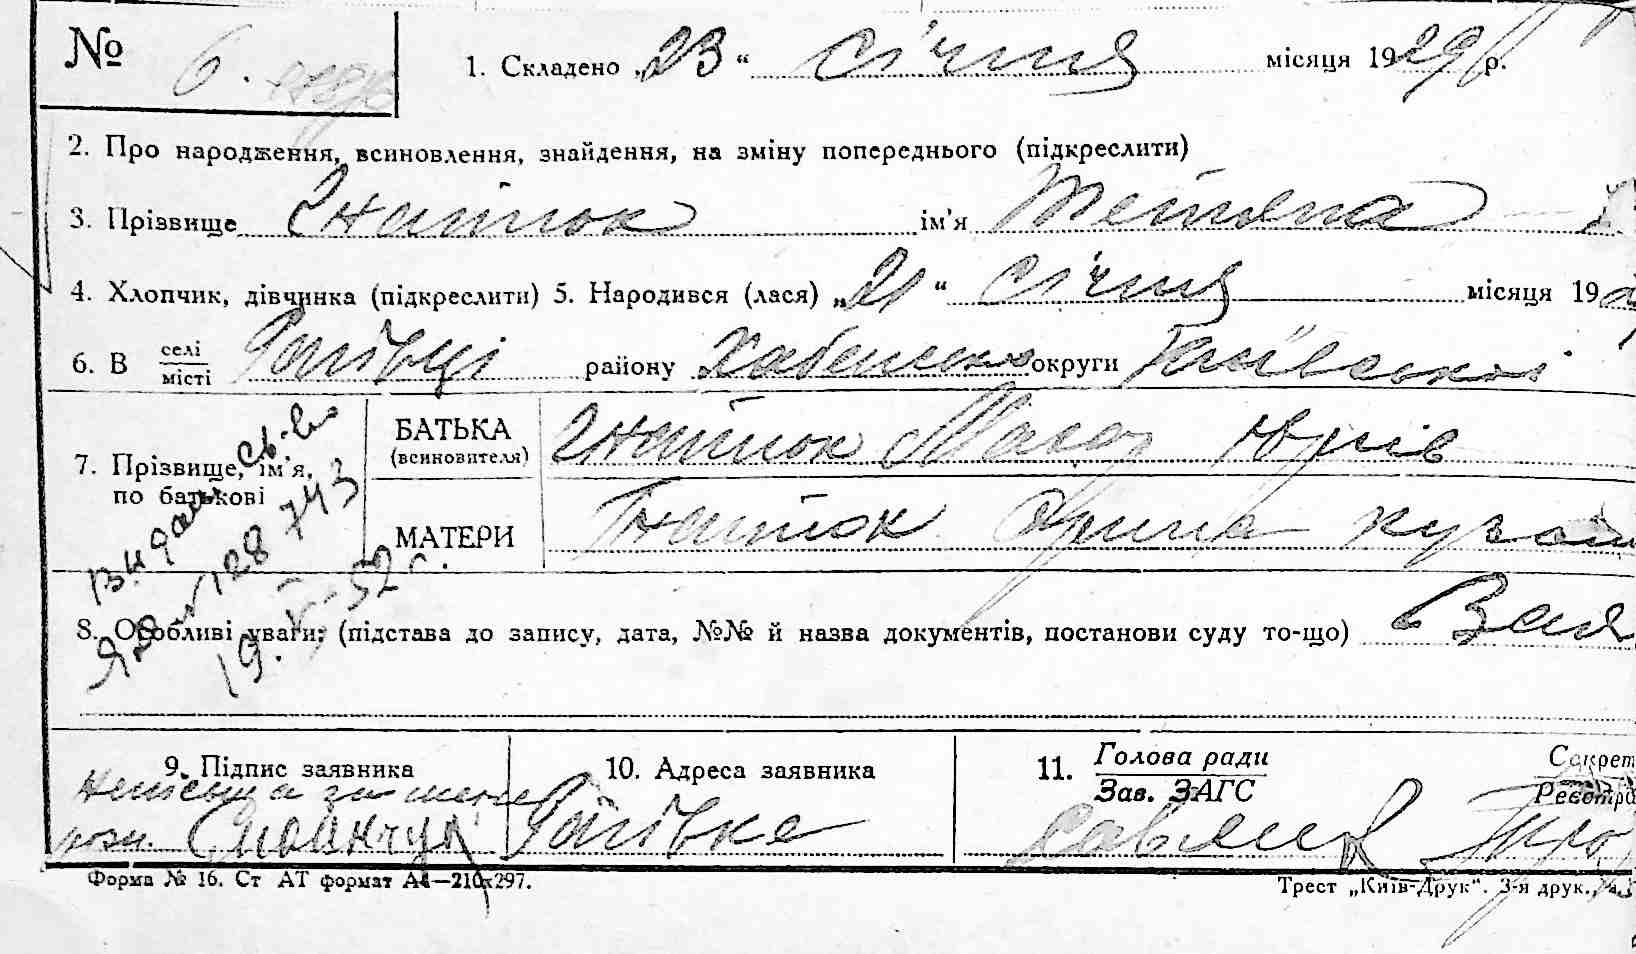 № 6.
1. Складено „23“ січня місяця 1929 р.
2. Про народження, всиновлення, знайдення, на зміну попереднього (підкреслити)
3. Прізвище Гнатюк ім'я Тетяна
4. Хлопчик, дівчинка (підкреслити) 5. Народився (лася) „21“ січня місяця 19
6. В селі місті Рагівці району Хабенсько округи Київської
7. Прізвище, ім'я, по батькові
БАТЬКА (всиновителя) Гнатюк Макар Юрків
МАТЕРИ Гнатюк Орина
Выдан св-во
ЯЗ № 128743
19. V. 52 г.
8. Особливі уваги: (підстава до запису, дата, №№ й назва документів, постанови суду то-що)
9. Підпис заявника
неписьмена за мене
розп.
10. Адреса заявника
Рагівка
11. Голова ради
Зав. ЗАГС
Савлик
Секрет
Реєстра
Форма № 16. Ст АТ формат А4—210х297.
Трест „Київ-Друк“. 3-я друк.,